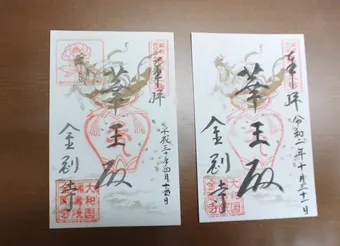 奉拝
平成三十年四月十五日
華王殿
金剛寺
大和国
奉拝
令和二年十月三十一日
華王殿
金剛寺
大和国